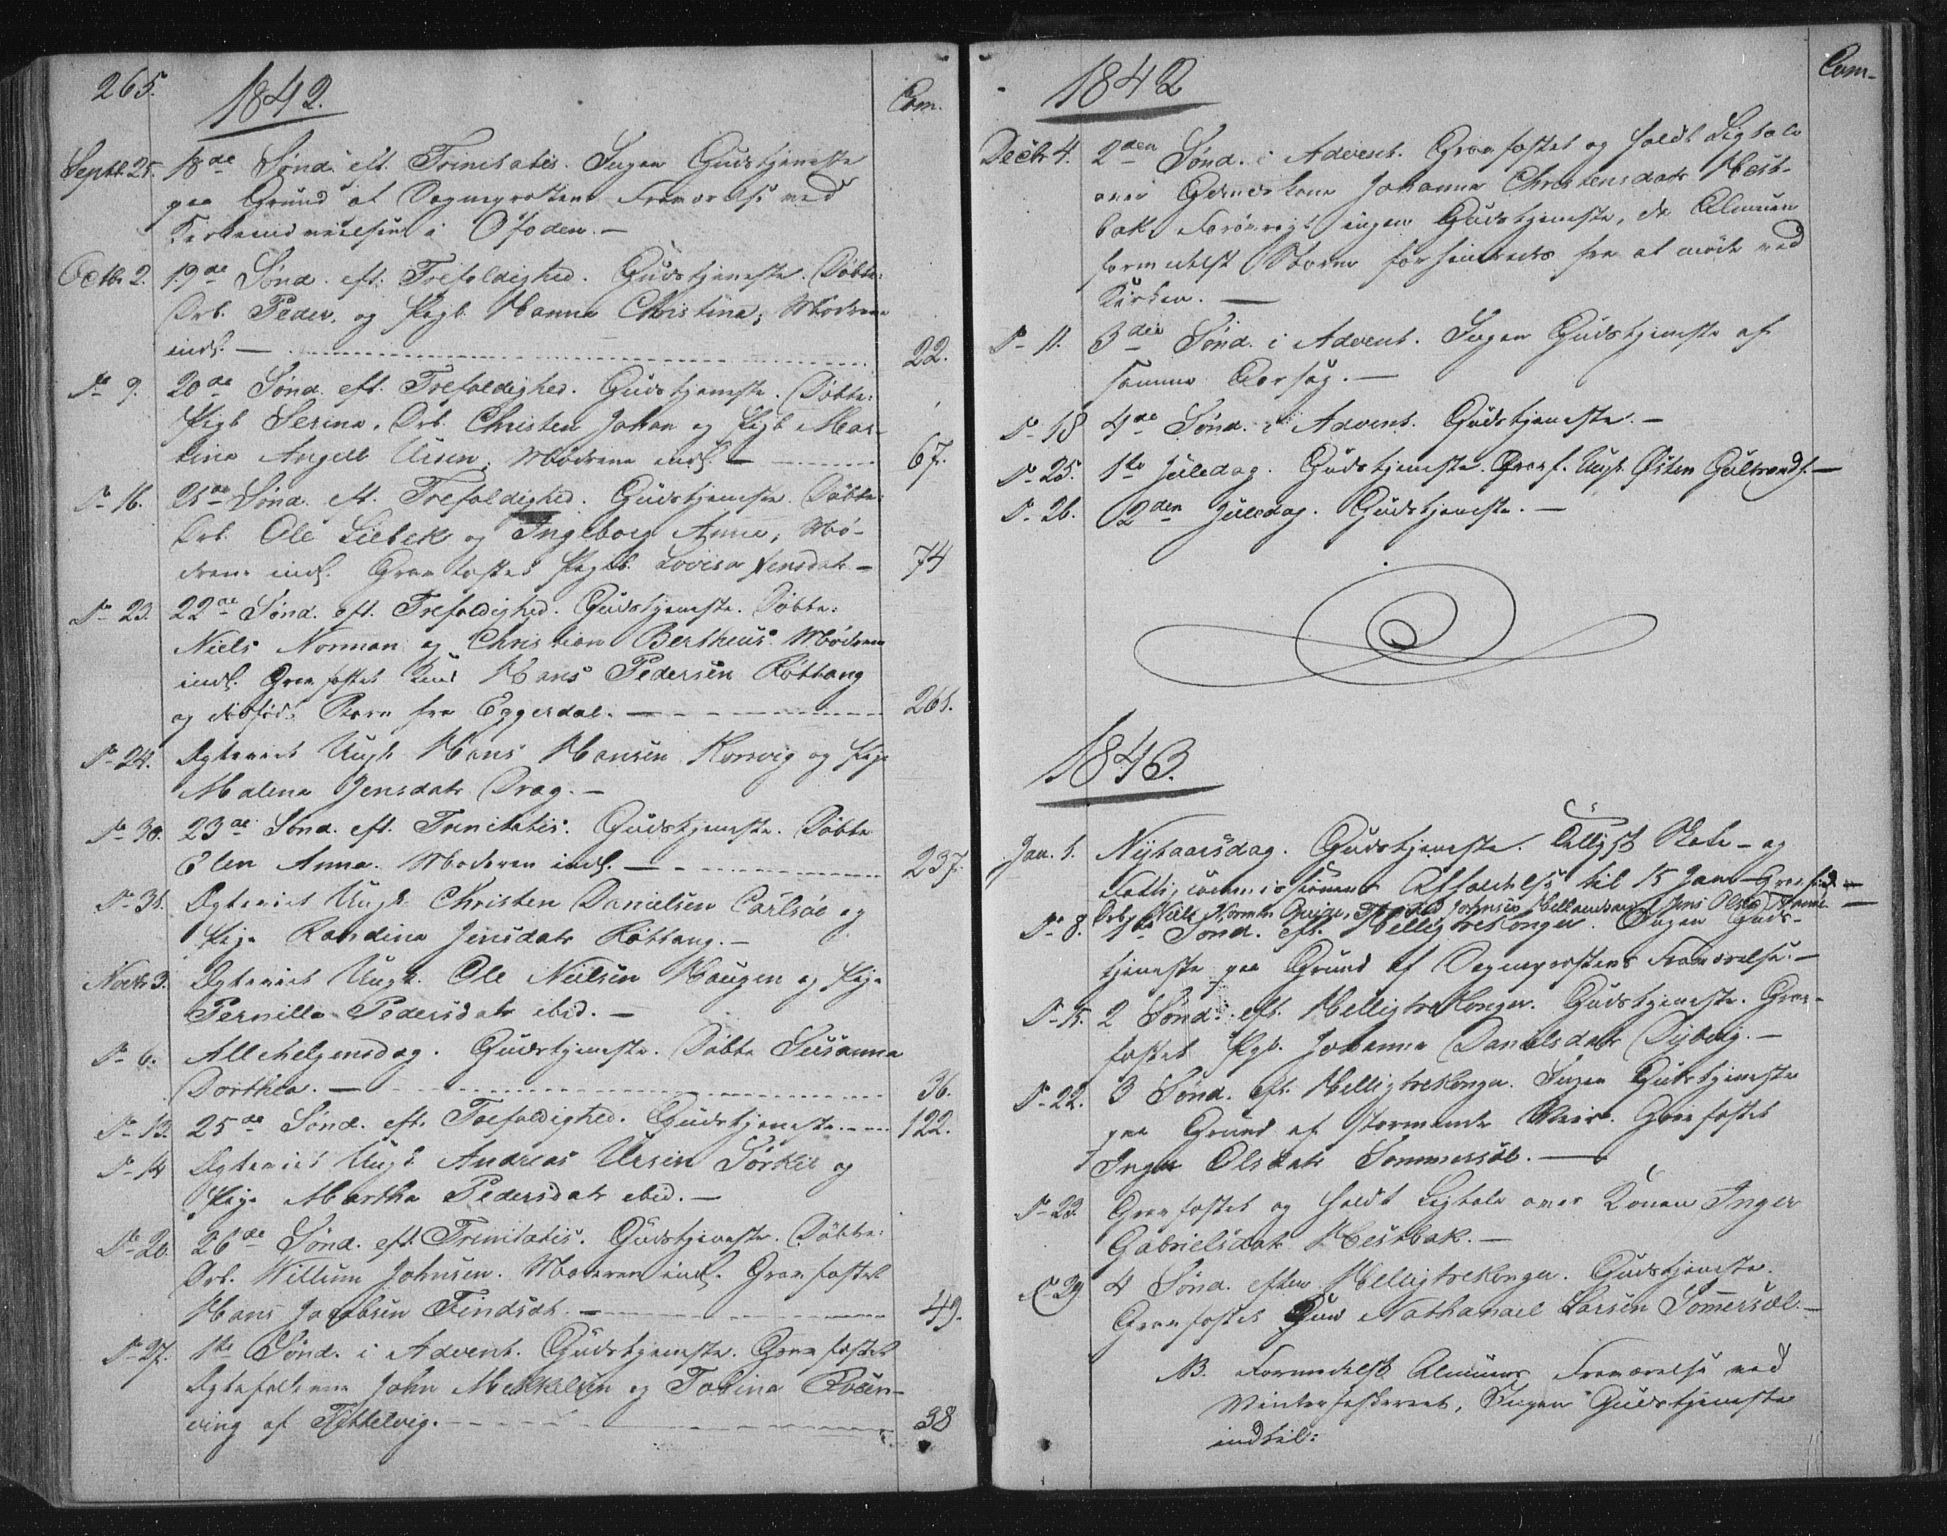 265.
1842.
Com.
Septbr 25. 18de Sønd. eft. Trinitatis. Ingen Gudstjeneste
paa Grund af Sogneprestens Fraværelse ved
Kirkeindvielsen i Ofoden. —
Octbr 2. 19de Sønd. eft. Trefoldighed. Gudstjeneste. Døbte:
Drb. Peder, og Pigb. Hanna Christina; Mødrene
indl. — 22.
Do 9. 20de Sønd. eft. Trefoldighed. Gudstjeneste. Døbte:
Pigb. Serina, Drb. Christen Johan og Pigb. Mar-
tina Angell Ursin. Mødrene indl. — 67.
Do 16. 21de Sønd. eft. Trefoldighed. Gudstjeneste. Døbte:
Drb. Ole Liebek og Ingeborg Anna, Mø-
drene indl. Gravfæstet Pigb. Lovisa Jensdatr — 74
Do 23. 22de Sønd. eft. Trefoldighed. Gudstjeneste. Døbte:
Niels Norman og Christian Bertheus. Mødrene
indl. Gravfæstet Hans Pedersen Røttang
og dødfød. Barn fra Eggesdal. — 261.
Do 24. Egteviet Ungk. Hans Hansen Korsvig og Pige
Malena Jensdatr Drag. —
Do 30. 23de Sønd. eft. Trinitatis. Gudstjeneste. Døbte
Elen Anna. Moderen indl. — 237.
Do 31. Egteviet Ungk. Christen Danielsen Carlsøe og
Pige Randina Jensdatr Røttang. —
Novbr 3. Egteviet Ungk. Ole Nielsen Haugen og Pige
Pernilla Pedersdatr ibid. —
Do 6. Allehelgensdag. Gudstjeneste. Døbte Susanna
Dorthea. — 36.
Do 13. 25de Sønd. eft. Trefoldighed. Gudstjeneste. — 122.
Do 14 Egteviet Ungk. Andreas Ursin Sørkil og
Pige Martha Pedersdatr ibid. —
Do 20. 26de Sønd. eft. Trinitatis. Gudstjeneste. Døbte:
Drb. Willum Johnsen. Moderen indl. Gravfæstet
Hans Jacobsen Findsæt. — 49.
Do 27. 1ste Sønd. i Advent. Gudstjeneste. Gravfæstet
Egtefolkene John Mekkelsen og Tobina
af Tøttelvig. — 38
1842
Com-
Decbr 4. 2den Sønd. i Advent. Gravfæstet og holdt Ligtale
over Johanna Christensdatr Hest-
bak. Forøvrigt ingen Gudstjeneste, da Almuen
formedelst Storm forhindredes fra at møde ved
Kirken. —
Do 11. 3die Sønd. i Advent. Ingen Gudstjeneste af
samme Aarsag. —
Do 18 4de Sønd. i Advent. Gudstjeneste. —
Do 25. 1ste Juledag. Gudstjeneste. Gravf. Ungk. Østen —
Do 26. 2den Juledag. Gudstjeneste. —
1843.
Jan. 1. Nytaarsdag. Gudstjeneste. Tillyst Skole- og
Fattigcommissionens Afholdelse til 15 Jan.
Drb. Niels Norman
Do 8. 1ste Sønd. eft. Helligtrekonger. Ingen Guds-
tjeneste paa Grund af Sogneprestens Fraværelse. —
Do 15. 2 Sønd. eft. Helligtrekonger. Gudstjeneste. Grav-
fæstet Pgb. Johanna Danielsdatr Dyberg. —
Do 22. 3 Sønd. eft. Helligtrekonger. Ingen Gudstjeneste
paa Grund af stormende Veir. Gravfæstet
Inger Olsdatr Sommersæl. —
Do 23. Gravfæstet og holdt Ligtale over Konen Inger
Gabrielsdatr Hestbak. —
Do 29 4 Sønd. efter Helligtrekonger. Gudstjeneste.
Gravfæstet Nathanael Larsen Sommersæl. —
NB. Formedelst Almuens Fraværelse ved
Vinterfiskeriet, Ingen Gudstjeneste
indtil: